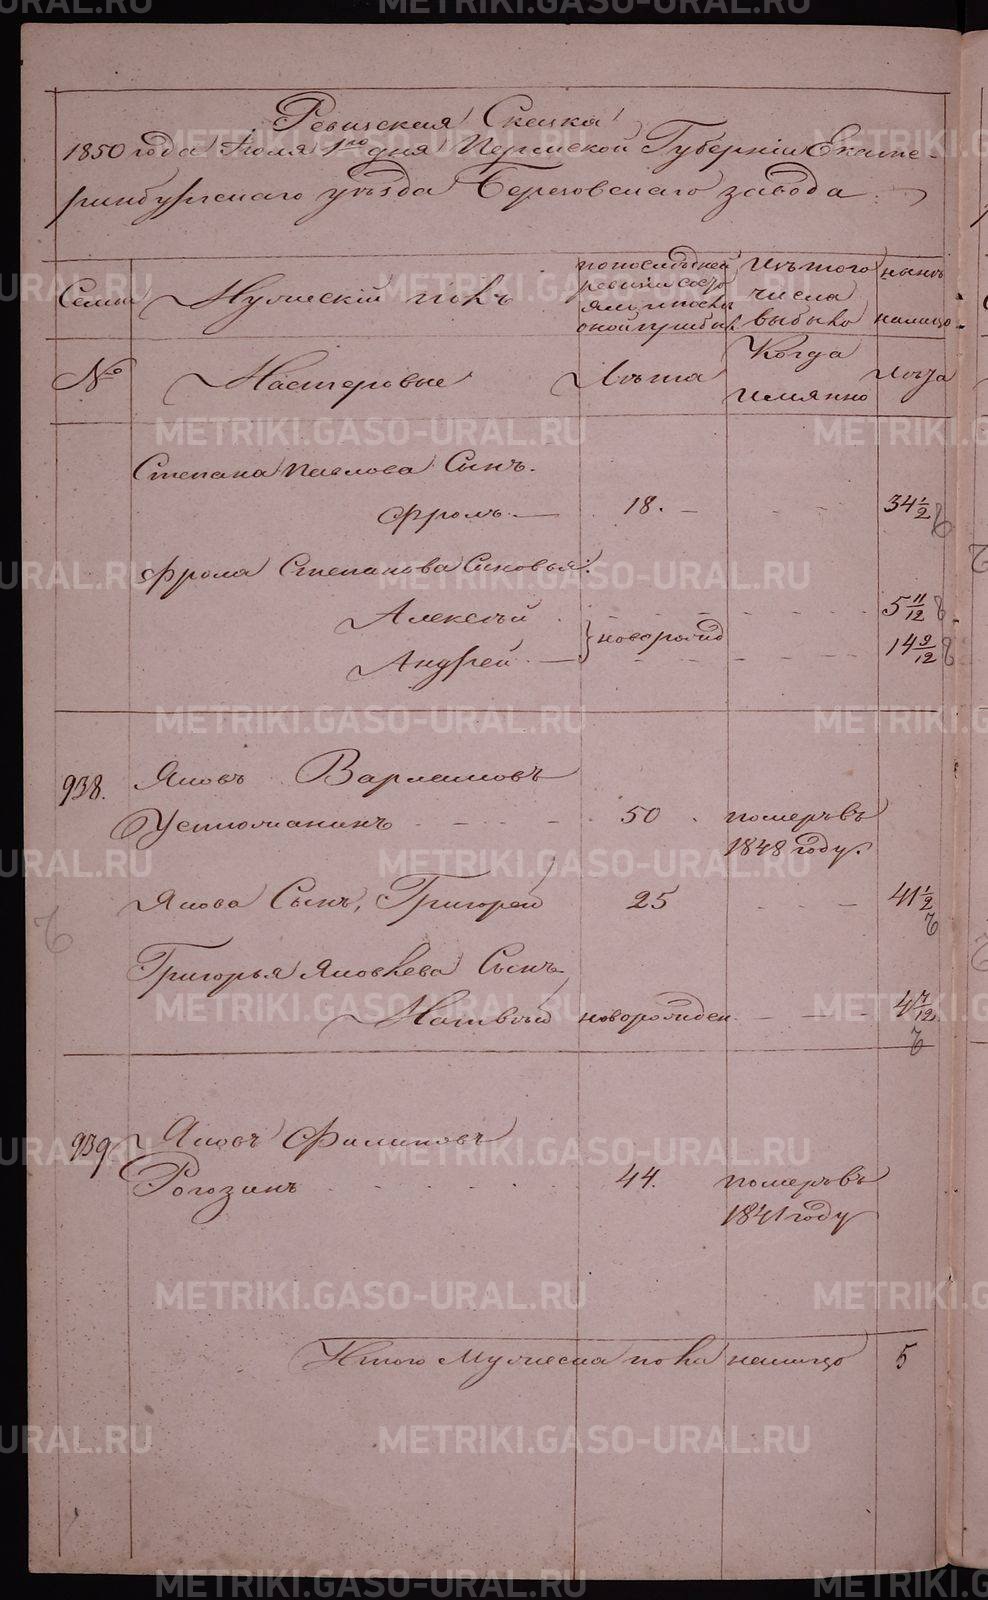 Ревизская Сказка
1850 года Июля 1го дня Пермской Губерніи Екате-
ринбургскаго уѣзда Березовскаго завода
Семьи
Мужескій полъ
по последней
ревизіи состо
яло и после
оной прибыло
Изъ того
числа
выбыло
нынѣ
налицо
№
Мастеровые
Лѣта
Когда
имянно
Лѣта
Степана Павлова Сынъ
Фролъ 18. 34 1/2
Фрола Степанова Сыновья:
Алексѣй 5 11/12
новорожд
Андрей 14 9/12
938. Яковъ Варламовъ
Устюжанинъ 50 померъ въ
1848 году.
Якова Сынъ, Григорей 25 41 1/2
Григорья Яковлева Сынъ
Матвѣй новорожден 4 7/12
939. Яковъ Филиповъ
Рогозинъ 44. померъ въ
1841 году
Итого Мужеска пола налицо 5
METRIKI.GASO-URAL.RU